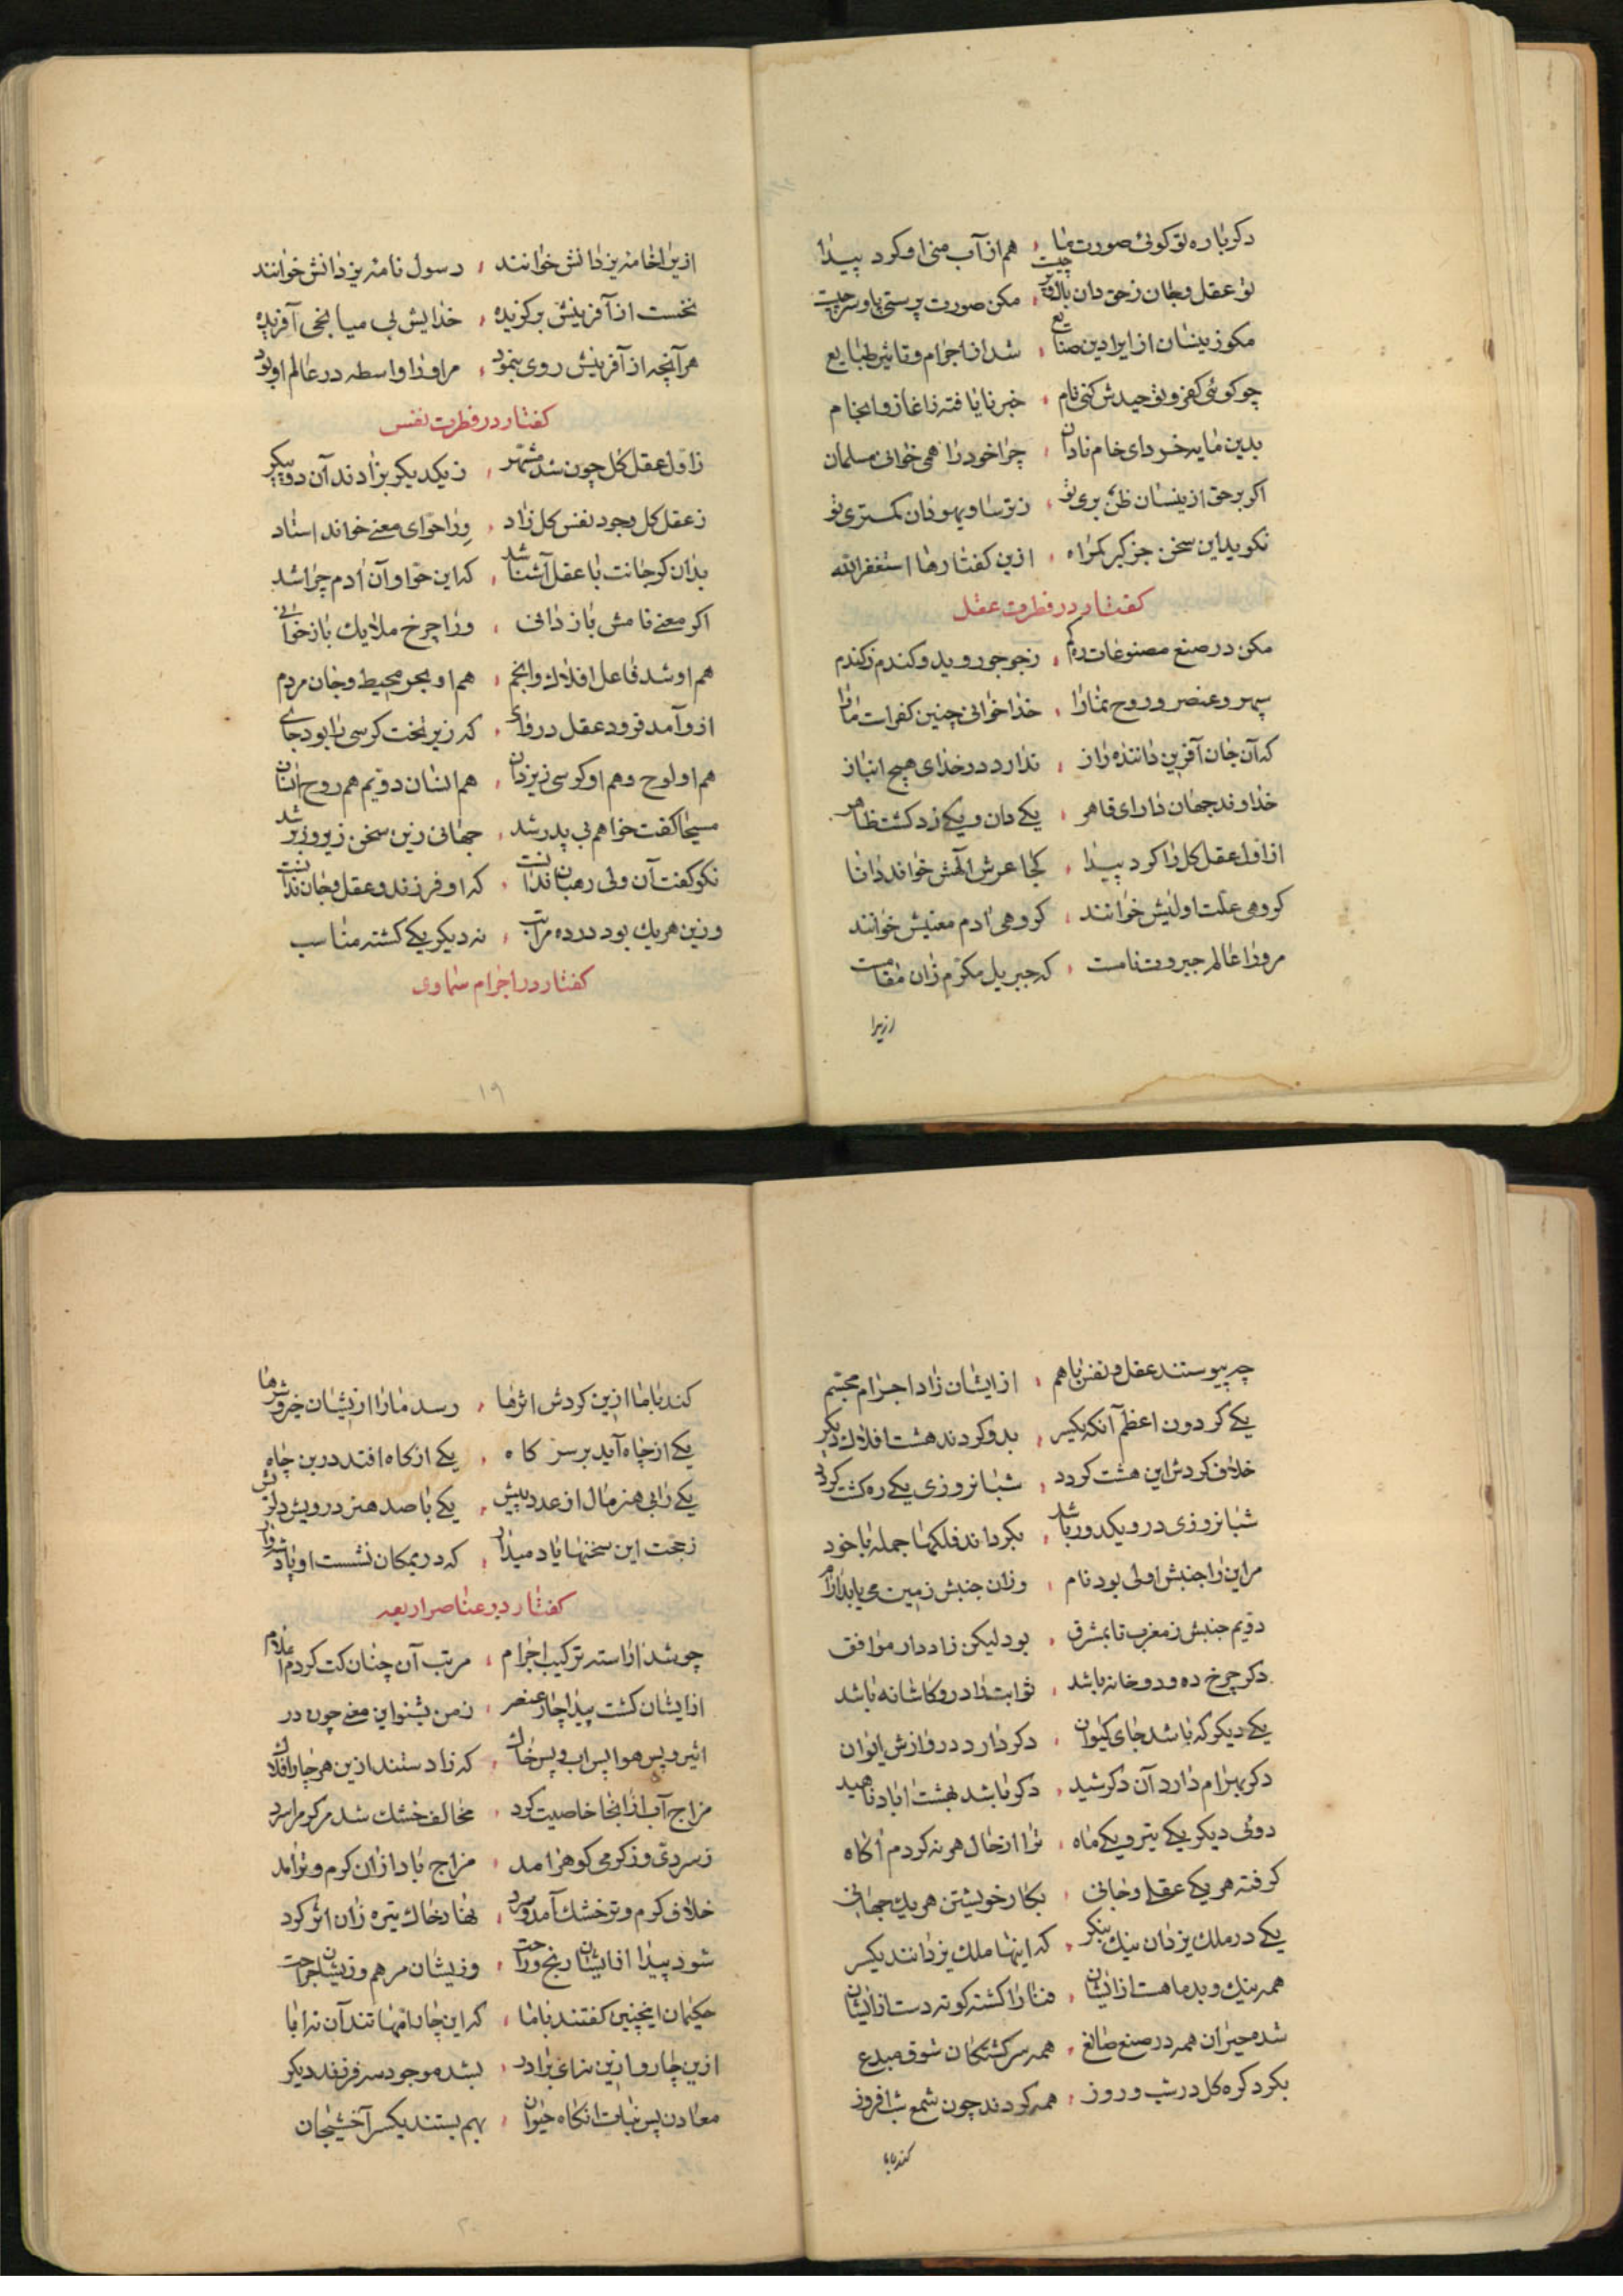 دكرباره تو كوئی صورت ما هم از آب منی او كرد پیدا
تو عقل و جان زحق دان بال و پر چیست مكن صورت پرستی پا و سر چیست
مكو زینسان ازایرا دین صنایع شد از اجرام و تاثیر طبایع
چو كوئی كفر و توحیدش كنی نام خبر نایافته ز آغاز و انجام
بدین مایه خرد ای خام نادان چرا خود را همی خوانی مسلمان
اكر برحق ازینسان ظن بری تو ز ترسا و یهودان كمتری تو
نكوید این سخن جز كبر كمراه ازین كفتارها استغفر الله
كفتار در فطرت عقل
مكن در صنع مصنوعات ره كم ز جو جو روید و كندم ز كندم
سپهر و عنصر و روح نما را خدا خوانی چنین كفرات ما را
كه آن جان آفرین داننده راز ندارد در خدای هیچ انباز
خداوند جهان دارای قاهر یكی دان و یكی زو كشت ظاهر
از اول عقل كل را كرد پیدا كجا عرش الهش خواند دانا
كروهی علت اولیش خوانند كروهی آدم معنیش خوانند
مرورا عالم جبروت نامست كه جبریل مكرم زان مقامست
ازیرا
ازیرا خامه یزدانش خوانند رسول نامه یزدانش خوانند
نخست از آفرینش بركزیده خدایش بی میانجی آفریده
هر آنچه از آفرینش روی بنمود مر او را واسطه در عالم او بود
كفتار در فطرت نفس
ز اول عقل كل چون شد مشهر ز یكدیكر بزادند آن دو پیكر
ز عقل كل بجود نفس كل زاد ورا حوای معنی خواند استاد
بدان كر جانت با عقل آشنا شد كه این حوا و آن آدم چرا شد
اكر معنی نامش باز دانی ورا چرخ ملایك باز خوانی
هم او شد فاعل افلاك و انجم هم او بحر محیط و جان مردم
ازو آمد فرود عقل در وای كه زیر تخت كرسی را بود جای
هم او لوح و هم او كرسی زیزدان هم انسان دویم هم روح انسان
مسیحا كفت خواهم بی پدر شد جهانی زین سخن زیر و زبر شد
نكو كفت آن ولی رهبان ندانست كه او فرزند و عقل و جان ندانست
وزین هر یك بود در ده مراتب به دیكر یكی كشته مناسب
كفتار در اجرام سماوی
۱۹
چه پیوستند عقل و نفس با هم از ایشان زاد اجرام مجسم
یكی كردون اعظم آنكه یكسر بدو كردند هشت افلاك دیكر
خلاف كردش این هشت كردد شبانروزی یكی ره كشت كردد
شبانروزی درو یكدور باشد بكرداند فلكها جمله با خود
مر این را جنبش اولی بود نام وزان جنبش زمین می یابد آرام
دویم جنبش ز مغرب تا بمشرق بود لیكن ز ادوار موافق
دكر چرخ ده و دو خانه باشد ثوابت را درو كاشانه باشد
یكی دیكر كه باشد جای كیوان دكر دارد درو اورمزدش ایوان
دكر بهرام دارد آن دكر شید دكر باشد بهشت اباد ناهید
دوئی دیكر یكی تیر و یكی ماه ترا از حال هر نه كردم آكاه
كرفته هر یكی عقلی و جانی بكار خویشتن هر یك جهانی
یكی در ملك یزدان نیك بنكر كه اینها ملك یزدانند یكسر
همه نیك و بد ما هست از ایشان فنا را كشته كوته دست از ایشان
شده حیران همه در صنع صانع همه سركشتكان شوق مبدع
بكرد كره كل در شب و روز همه كردند چون شمع شب افروز
كند با ما
كند با ما ازین كردش اثرها رسد ما را از یشان خیر و شرها
یكی از چاه آید بر سر كاه یكی از كاه افتد در بن چاه
یكی را بی هنر مال از عدد بیش یكی با صد هنر درویش دلریش
زحجت این سخنها یاد میدار كه در یمكان نشست او پادشه وار
كفتار در عناصر اربعه
چو شد آراسته تركیب اجرام مرتب آن چنان كت كردم اعلام
از ایشان كشت پیدا چار عنصر ز من بشنو این معنی چون در
اثیر و پس هوا پس آب و پس خاك كه زادستند ازین هر چار افلاك
مزاج آب از آنجا خاصیت كرد مخالف خشك شد مر كرم را سرد
ز سردی و ز كرمی كوهر آمد مزاج باد از آن كرم و تر آمد
خلاف كرم و تر خشك آمد و سرد نهاد خاك تیره زان اثر كرد
شود پیدا از ایشان رنج و راحت وزیشان مرهم وزیشان جراحت
حكیمان اینچنین كفتند با ما كه این چار امهاتند آن نه آبا
ازین چار و ازین نه ای برادر بشد موجود سه فرزند دیكر
معادن پس نبات آنكاه حیوان بهم بستند یكسر آخشیجان
۲۰